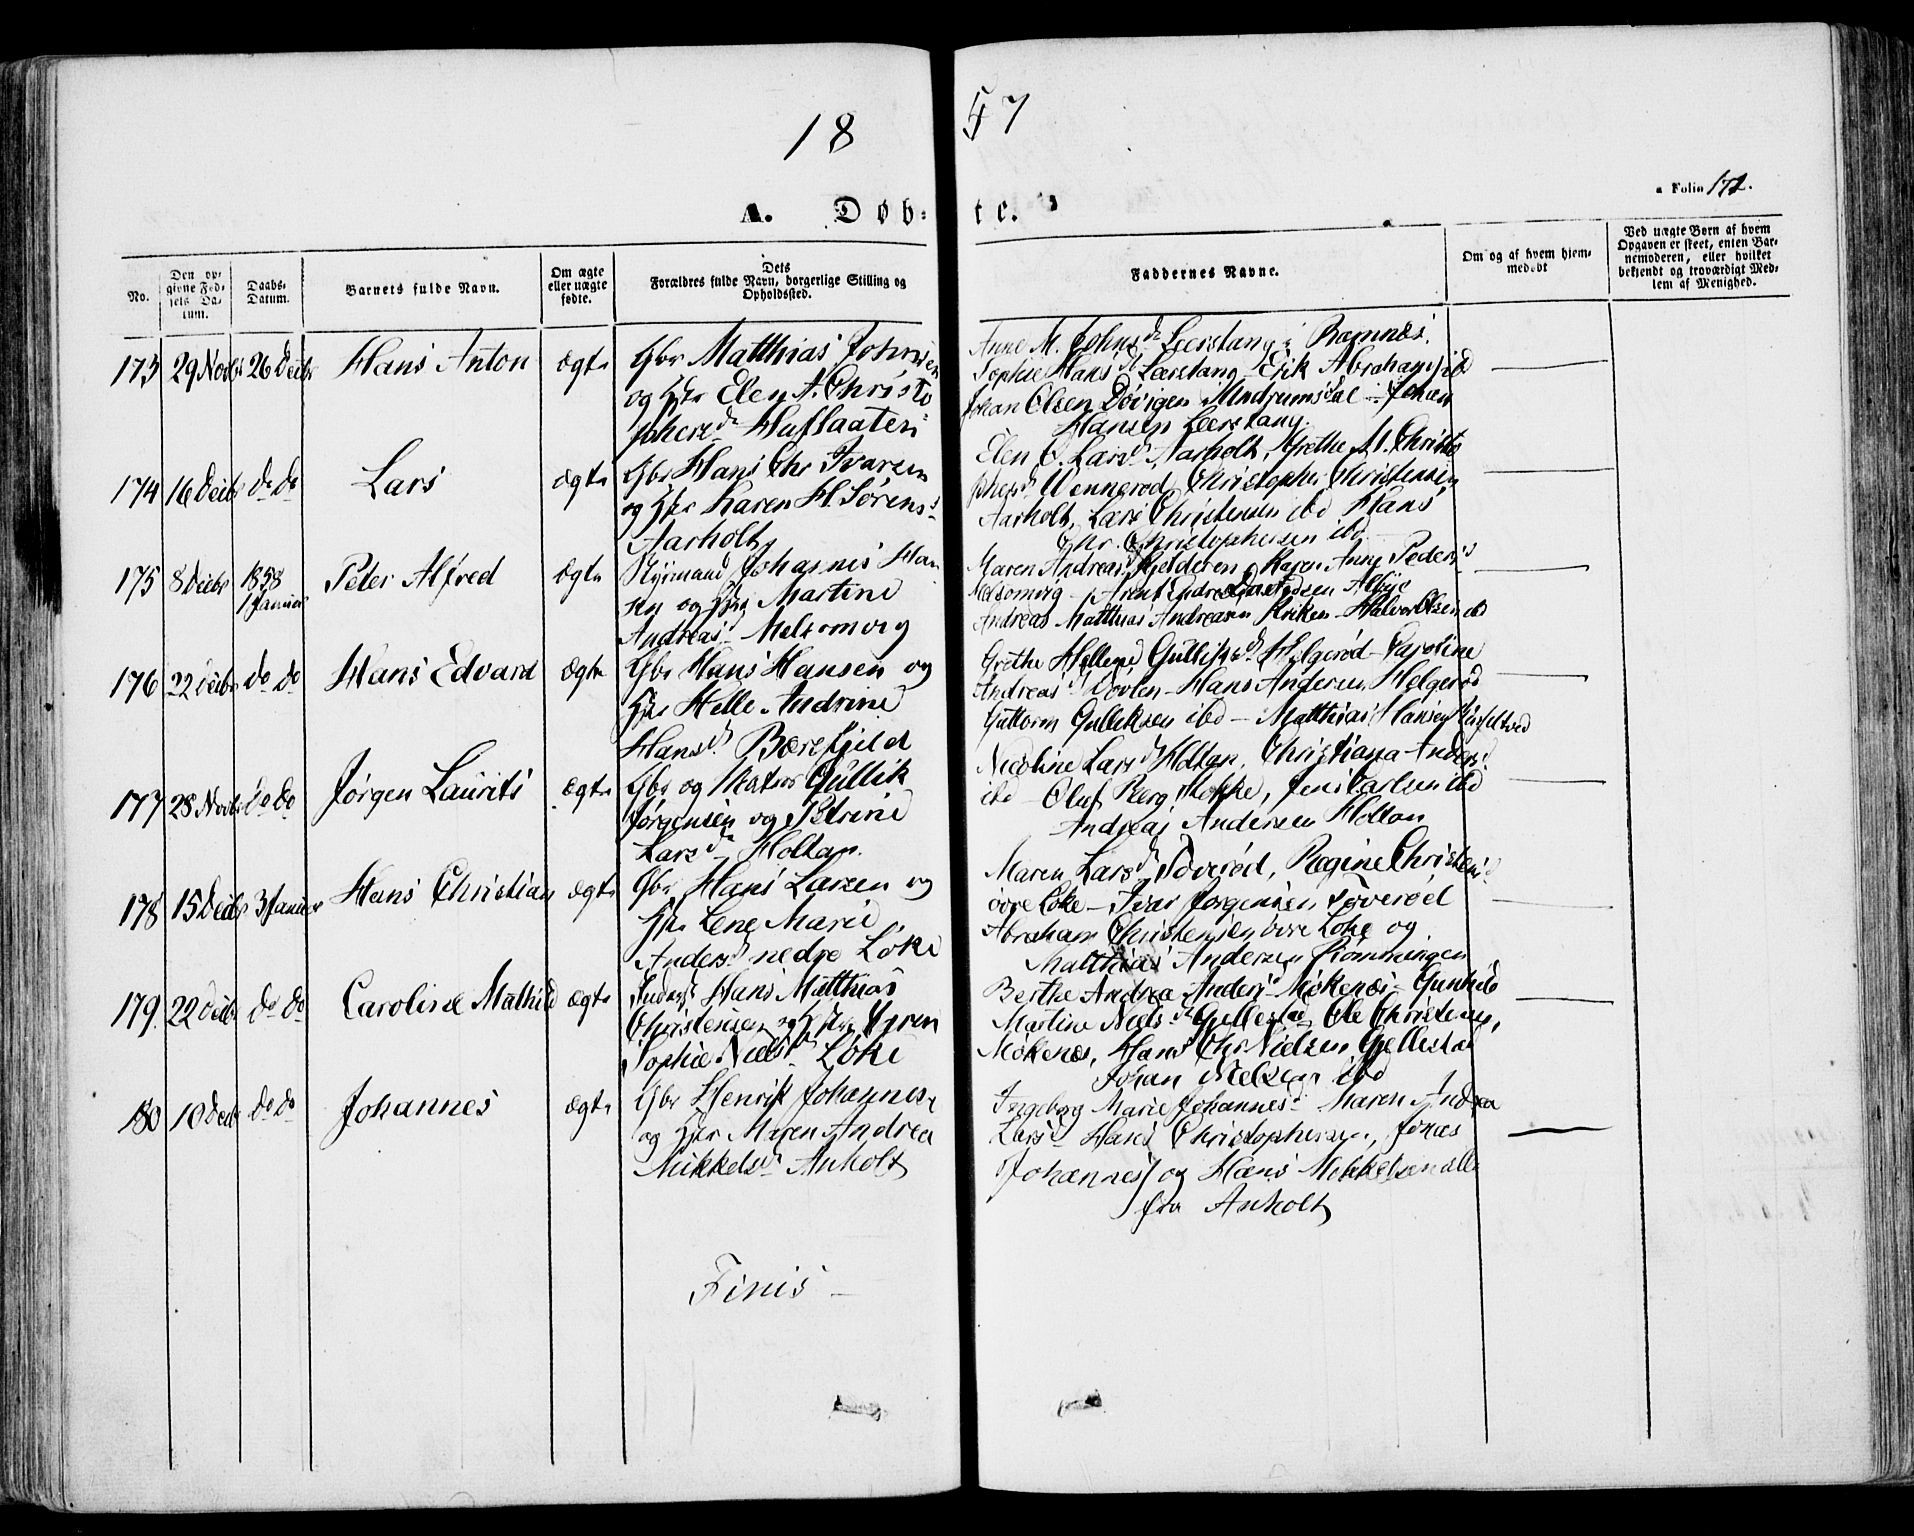 18 57
a Folio 172.
A. Døb: te.
No.
Den op-
givne Fød-
sels Da-
tum.
Daabs-
Datum.
Barnets fulde Navn.
Om ægte
eller uægte
fødte.
Dets
Forældres fulde Navn, borgerlige Stilling og
Opholdssted.
Faddernes Navne.
Om og af hvem hjem-
medøbt
Ved uægte Børn af hvem
Opgaven er skeet, enten Bar-
nemoderen, eller hvilket
bekjendt og troværdigt Med-
lem af Menighed.
173 29 Novbr 26 Decbr Hans Anton ægte
Gbr Matthias Johnsen
og Hstr Elen A. Christo
phersd
Anne M. Johnsd Leerstang i Ramnæs.
Sophie Hansd Leerstang Erik Abrahams ibd
Johan Olsen Johan
Hansen Leerstang.
174 16 Decbr do do Lars ægte
Gbr Hans Chr Ivarsen
og Hstr Karen H. Sørens
Aarholt
Elen C. Larsd Aarholt, Grethe M. Christo
phersd Wennerød Christopher Christensen
Aarholt, Lars Christensen ibd Hans
Chr. Christophersen ibd
175 8 Decbr 1858
1 Januar Peter Alfred ægte
Styrmand Johannes Han
sen og Hstr Martine
Andreasd Melsomvig
Maren Andreasd Karen Anne Peders
Melsomvig
Andreas Matthias Andreasen Halvor Olsen ibd
176 22 Decbr do do Hans Edvard ægte
Gbr Hans Hansen og
Hstr Helle Andrine
Hansd Bærefjeld
Grethe Hellene Gulliksd Helgerød Caroline
Andreasd Hans Andersen Helgerød
Guttorm Gulliksen ibd Matthias Hansen
177 28 Novbr do do Jørgen Laurits ægte
Gbr og Gullik
Jørgensen og Petrine
Larsd Holtan.
Nicoline Larsd Holtan, Christiana Anders
ibd Oluf Berg Jens Carlsen ibd
Andreas Andersen Holtan
178 15 Decbr 3 Januar Hans Christian ægte
Gbr Hans Larsen og
Hstr Lene Marie
Andersd nedre Løke
Maren Larsd Roverød, Regine Christens
øvre Løke Ivar Jørgensen
Abraham Christensen øvre Løke og
Matthias Andersen Rømmingen
179. 22 Decbr do do Caroline Mathild ægte
Inderst Hans Matthias
Christensen og Hstr
Sophie Nielsd Løke
Berthe Andrea Anders Møkenæs Gunhild
Martine Nielsd Gjellestad Ole Christens,
Møkenæs, Hans Chr Nielsen Gjellestad
Johan Nielsen ibd
180 10 Decbr do do Johannes ægte
Gbr Henrik Johannes.
og Hstr Maren Andrea
Mikkelsd Anholt
Ingeborg Marie Johannesd Maren Andrea
Larsd Hans Christophersen, Jonas
Johannes og Hans Mikkelsen alle
fra Anholt
Finis